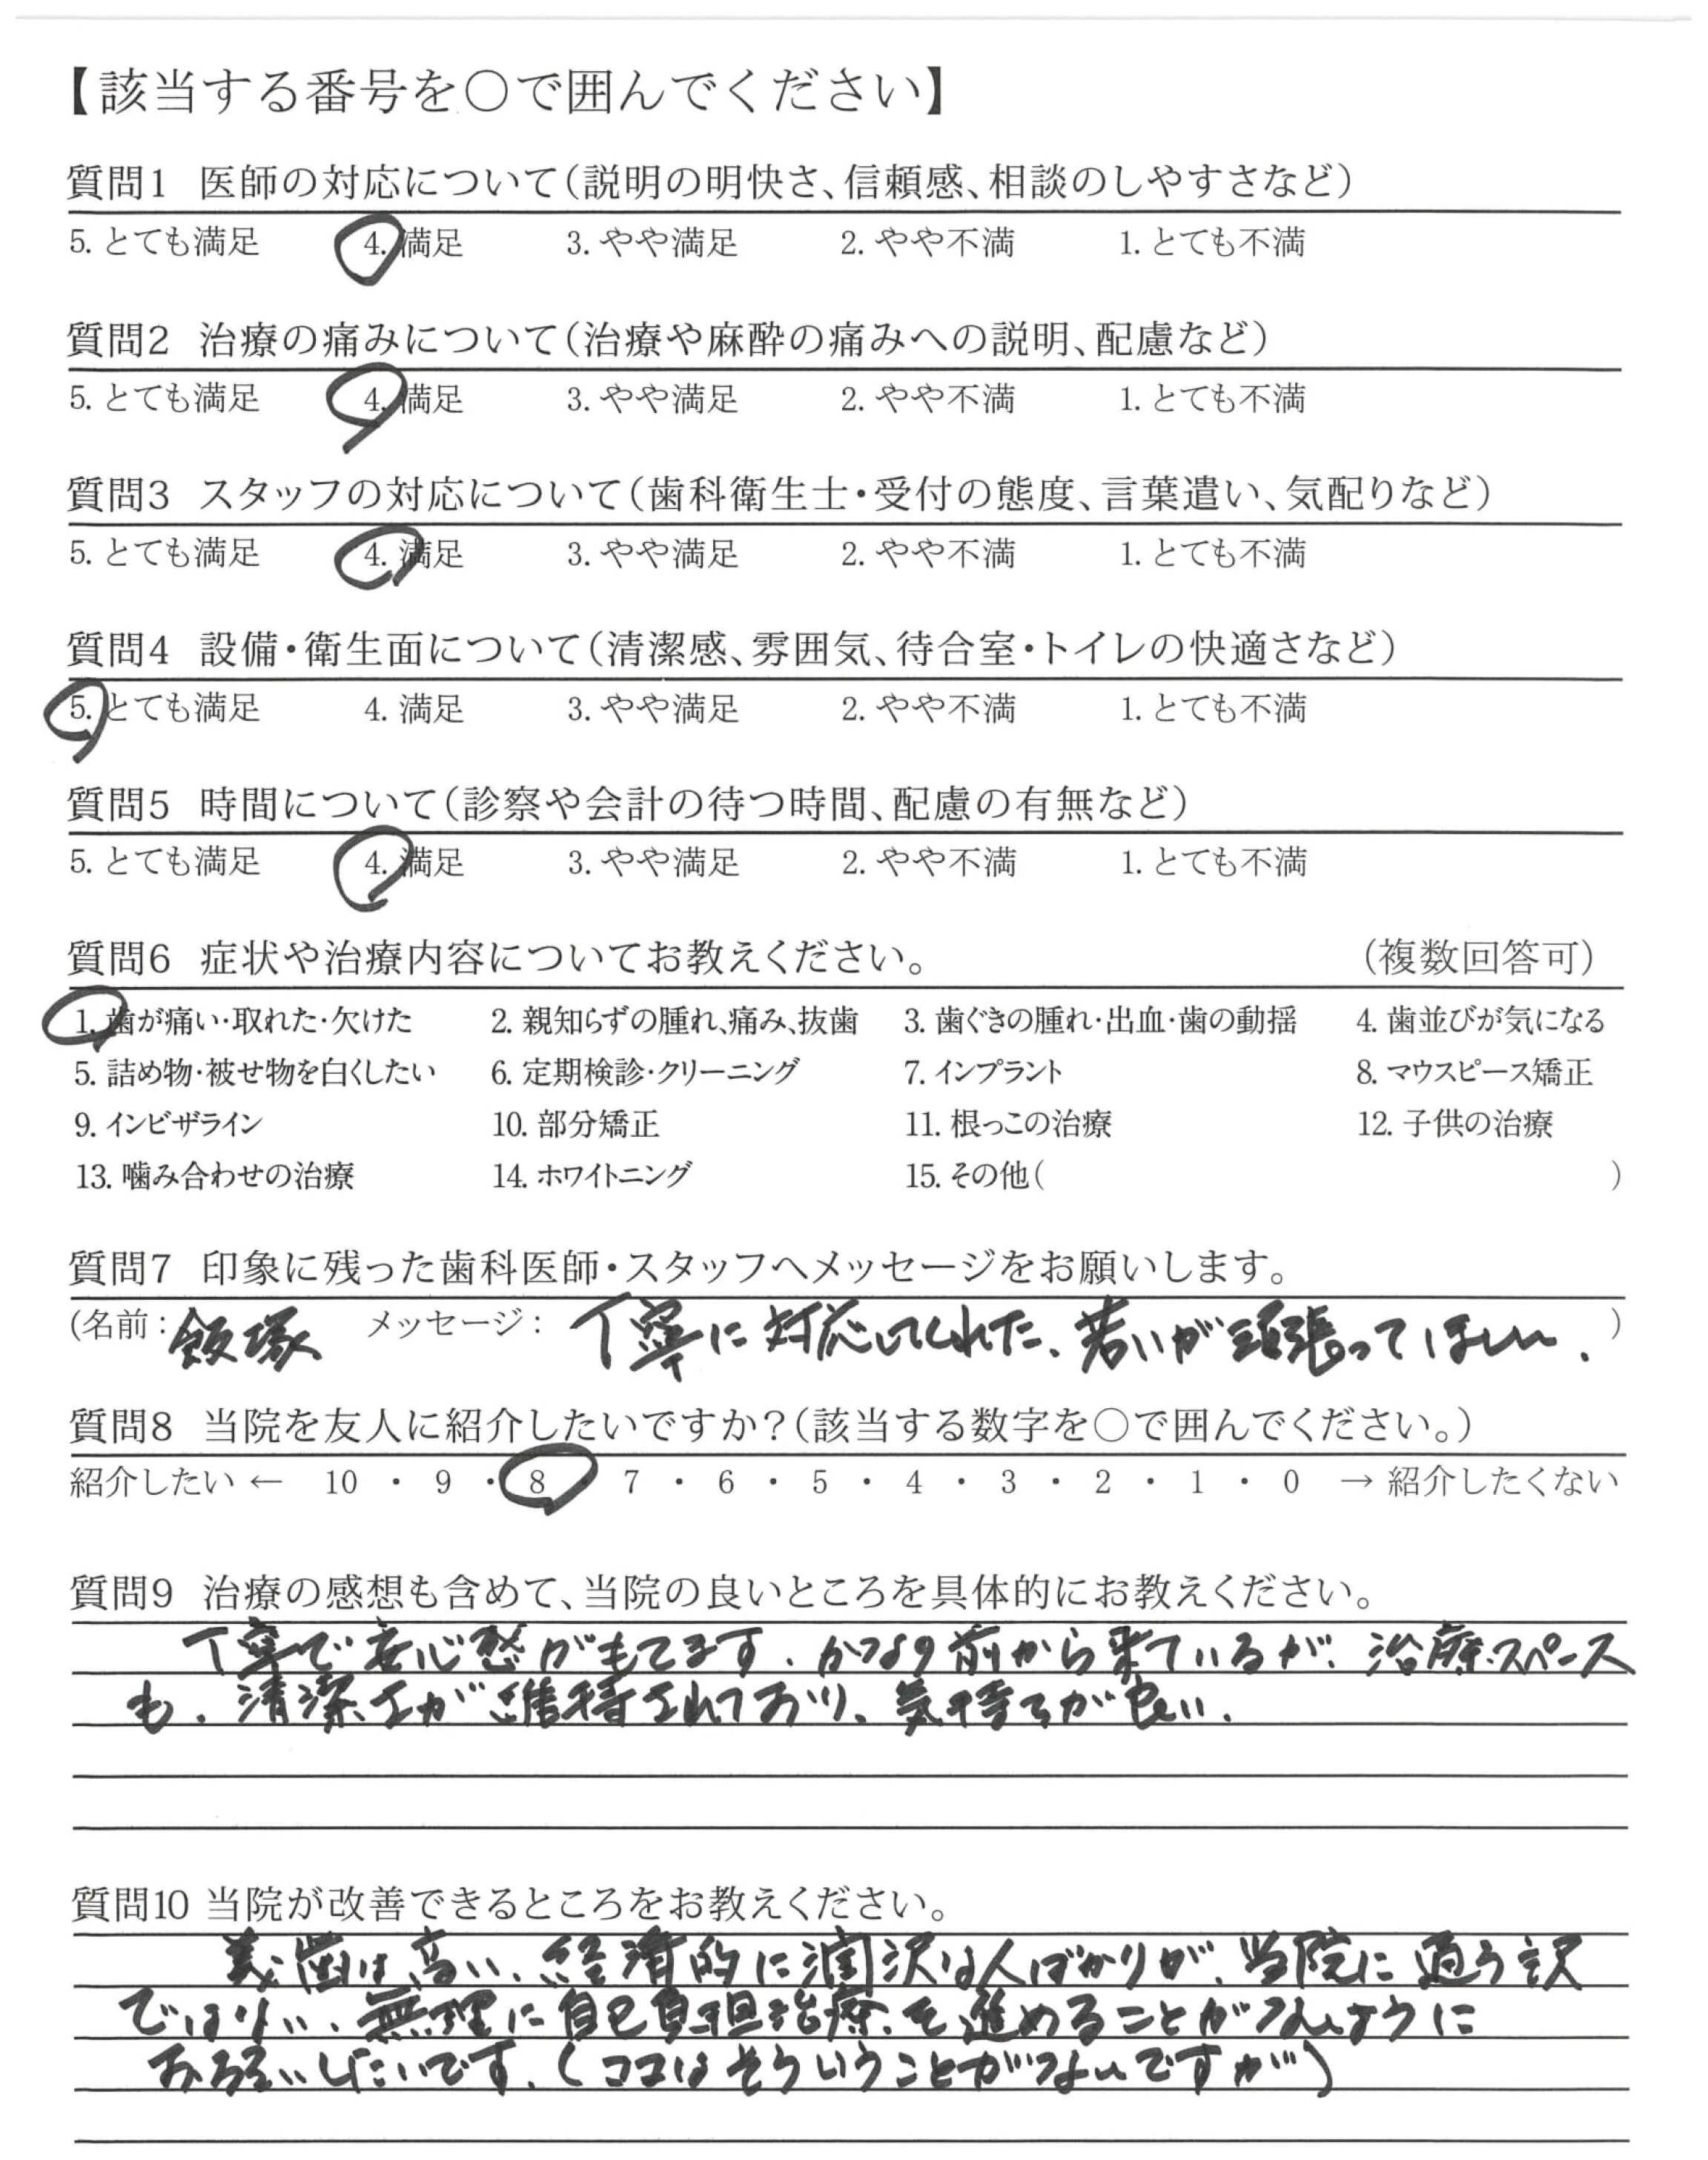 【該当する番号を○で囲んでください】
質問1 医師の対応について（説明の明快さ、信頼感、相談のしやすさなど）
5. とても満足 4. 満足 3. やや満足 2. やや不満 1. とても不満
質問2 治療の痛みについて（治療や麻酔の痛みへの説明、配慮など）
5. とても満足 4. 満足 3. やや満足 2. やや不満 1. とても不満
質問3 スタッフの対応について（歯科衛生士・受付の態度、言葉遣い、気配りなど）
5. とても満足 4. 満足 3. やや満足 2. やや不満 1. とても不満
質問4 設備・衛生面について（清潔感、雰囲気、待合室・トイレの快適さなど）
5. とても満足 4. 満足 3. やや満足 2. やや不満 1. とても不満
質問5 時間について（診察や会計の待つ時間、配慮の有無など）
5. とても満足 4. 満足 3. やや満足 2. やや不満 1. とても不満
質問6 症状や治療内容についてお教えください。 （複数回答可）
1. 歯が痛い・取れた・欠けた 2. 親知らずの腫れ、痛み、抜歯 3. 歯ぐきの腫れ・出血・歯の動揺 4. 歯並びが気になる
5. 詰め物・被せ物を白くしたい 6. 定期検診・クリーニング 7. インプラント 8. マウスピース矯正
9. インビザライン 10. 部分矯正 11. 根っこの治療 12. 子供の治療
13. 噛み合わせの治療 14. ホワイトニング 15. その他（ ）
質問7 印象に残った歯科医師・スタッフへメッセージをお願いします。
(名前：飯塚 メッセージ：丁寧に対応してくれた、若いが頑張ってほしい. )
質問8 当院を友人に紹介したいですか？（該当する数字を○で囲んでください。）
紹介したい ← 10 ・ 9 ・ 8 7 ・ 6 ・ 5 ・ 4 ・ 3 ・ 2 ・ 1 ・ 0 → 紹介したくない
質問9 治療の感想も含めて、当院の良いところを具体的にお教えください。
丁寧で安心感がもてます. かなり前から来ているが、治療スペース
も、清潔さが維持されており、気持ちが良い.
質問10 当院が改善できるところをお教えください。
義歯は高い、経済的に潤沢な人ばかりが、当院に通う訳
ではない、無理に自己負担治療を進めることがないように
お願いしたいです.（ココはそういうことがないですが）